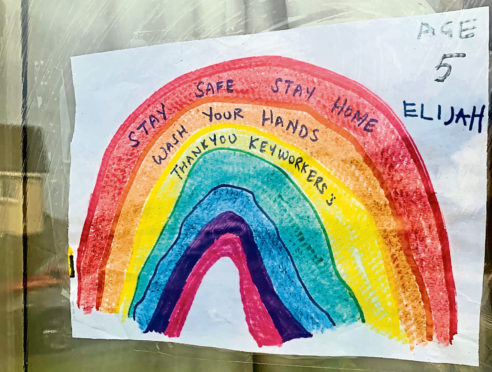 AGE
5
ELIJAH
STAY SAFE STAY HOME
WASH YOUR HANDS
THANKYOU KEYWORKERS :)